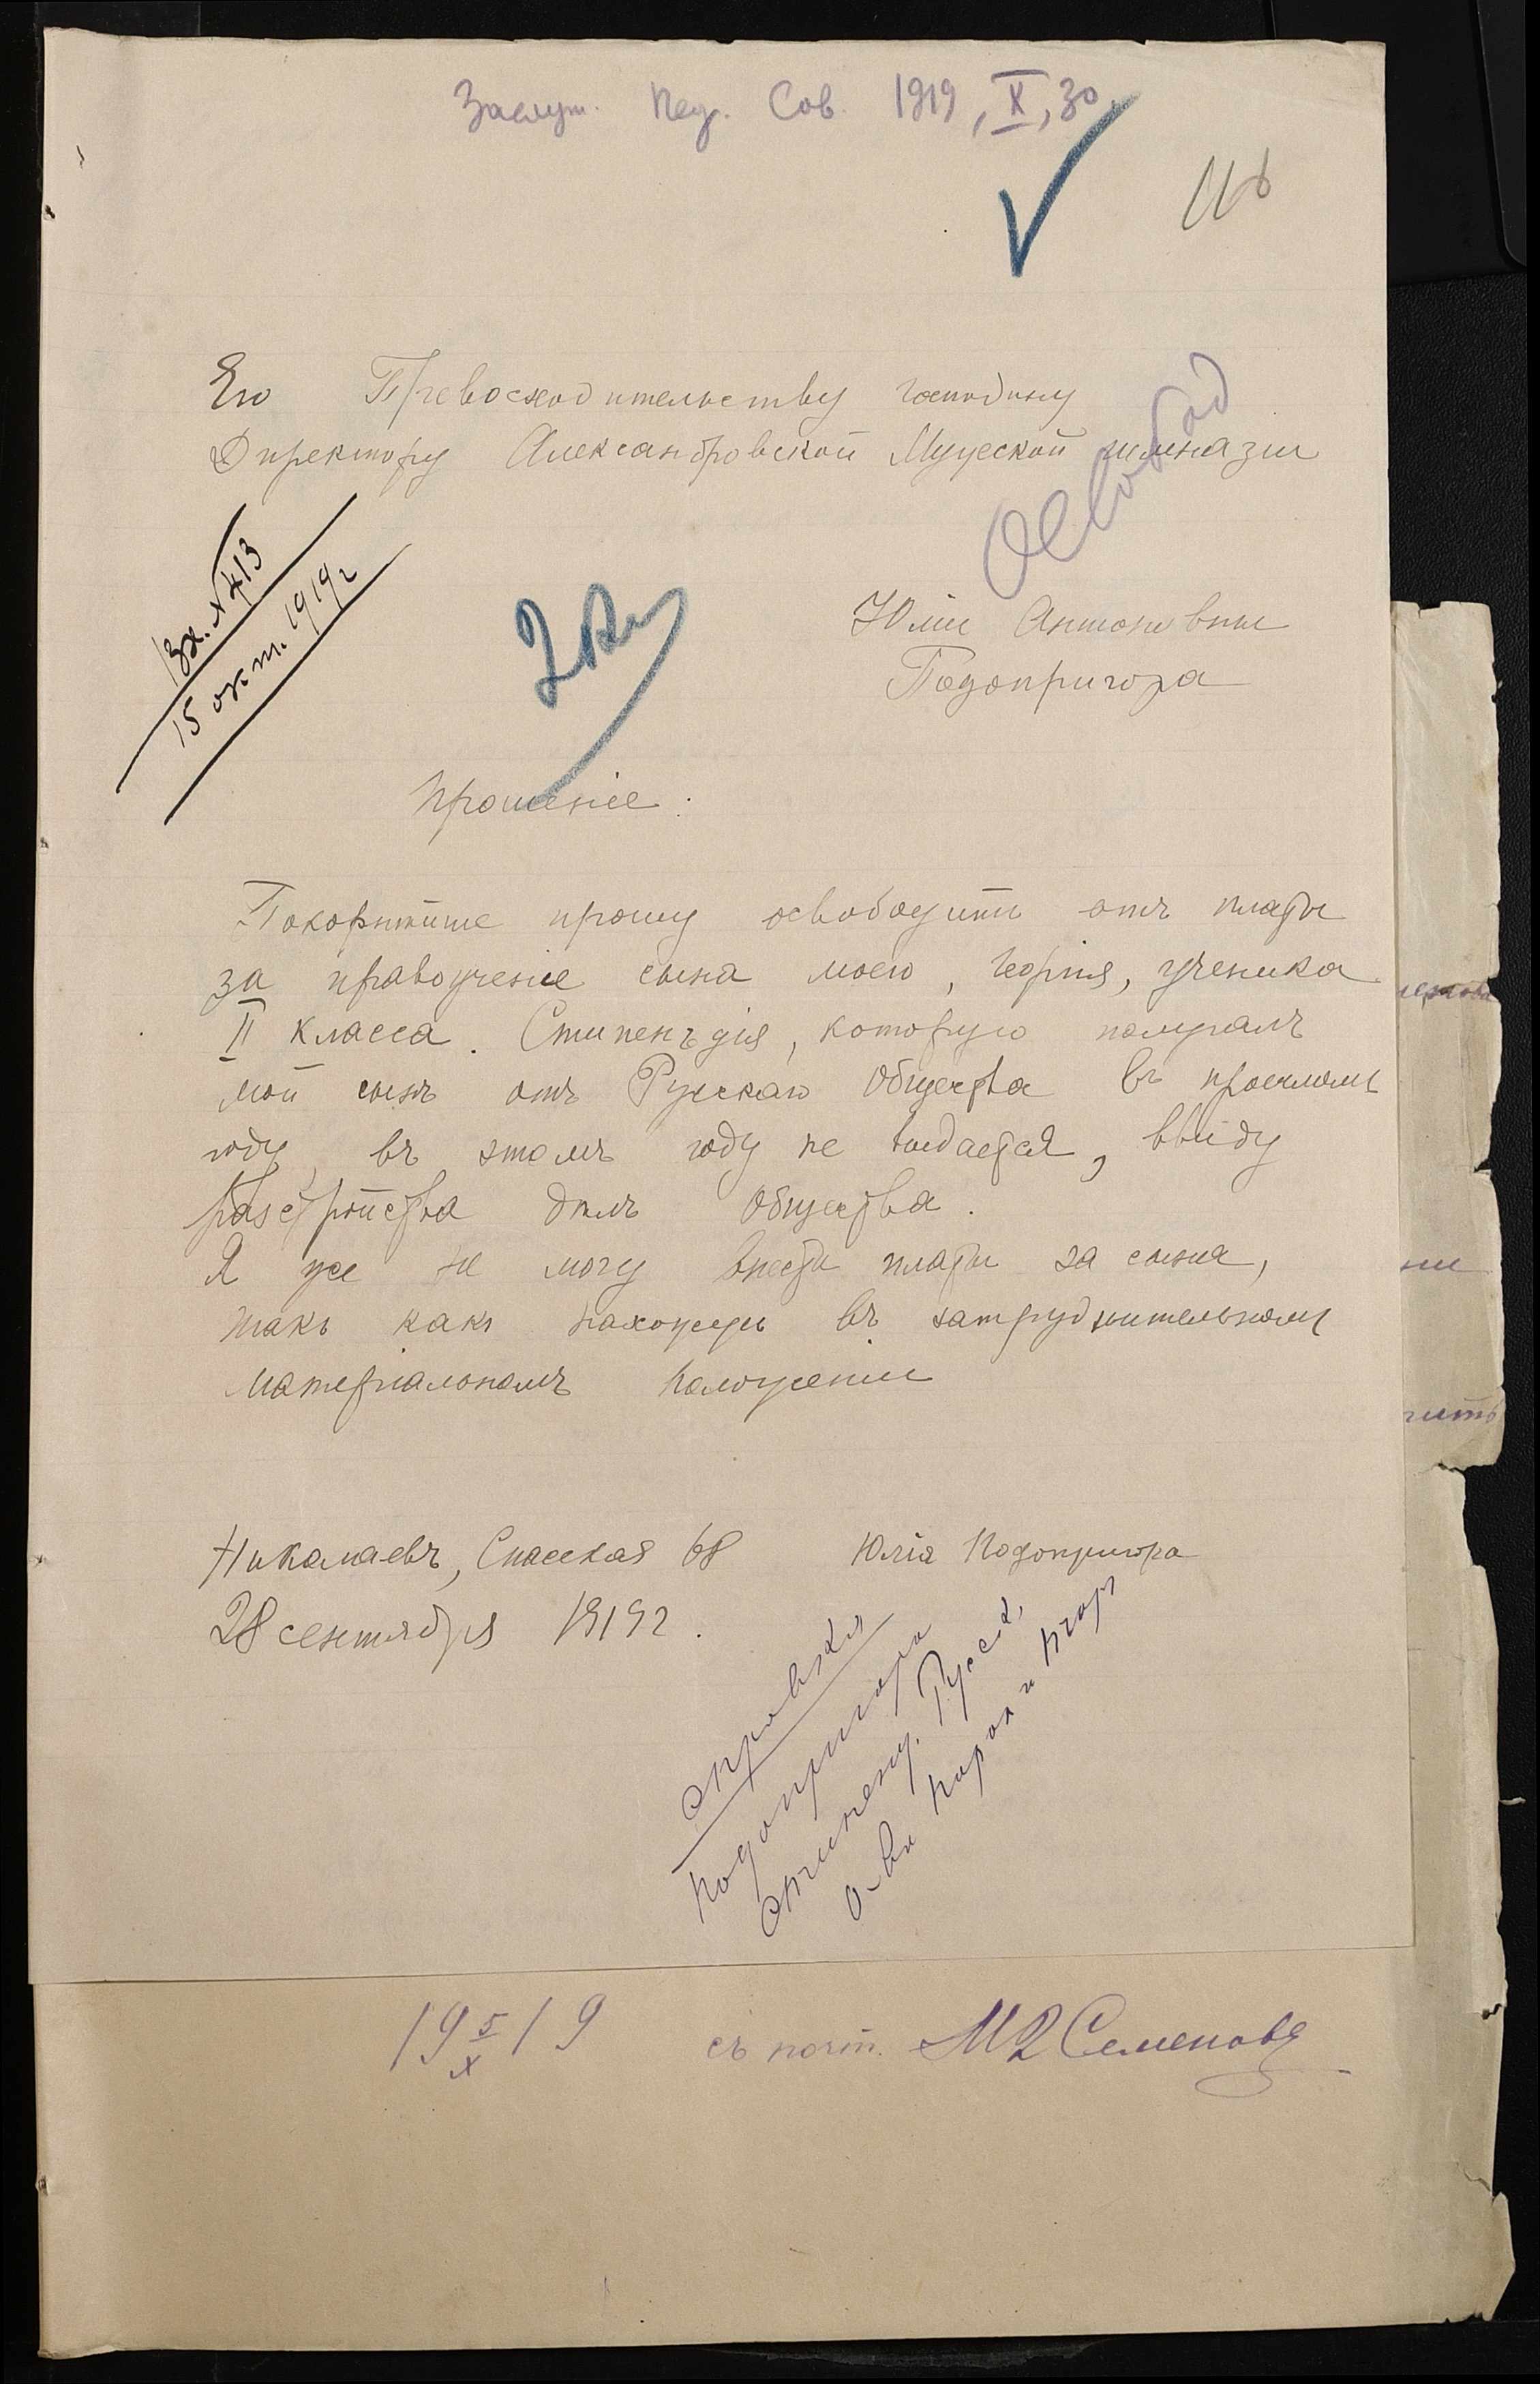 Заслуш. Пед. Сов. 1919, X, 30
116
Его Превосходительству Господину
Директору Александровской Мужской гимназіи
Освобод
Вх. № 413
15 окт. 1919 г
2 кл
Юліи Антоновны
Подопригора
Прошеніе.
Покорнѣйше прошу освободить отъ платы
за правоученіе сына моего, Георгія, ученика
II класса. Стипенъдія, которую получалъ
мой сынъ отъ Русскаго Общества въ прошломъ
году, въ этомъ году не выдается, ввиду
разстройства дѣлъ Общества.
Я же не могу внести платы за сына,
такъ какъ нахожусь въ затруднительномъ
матеріальномъ положеніи
Николаевъ, Спасская 68
Юлія Подопригора
28 сентября 1919 г.
справка
Подопригора
стипенд. Русск.
о-ва
19 5/X 19
съ почт. Семеновъ